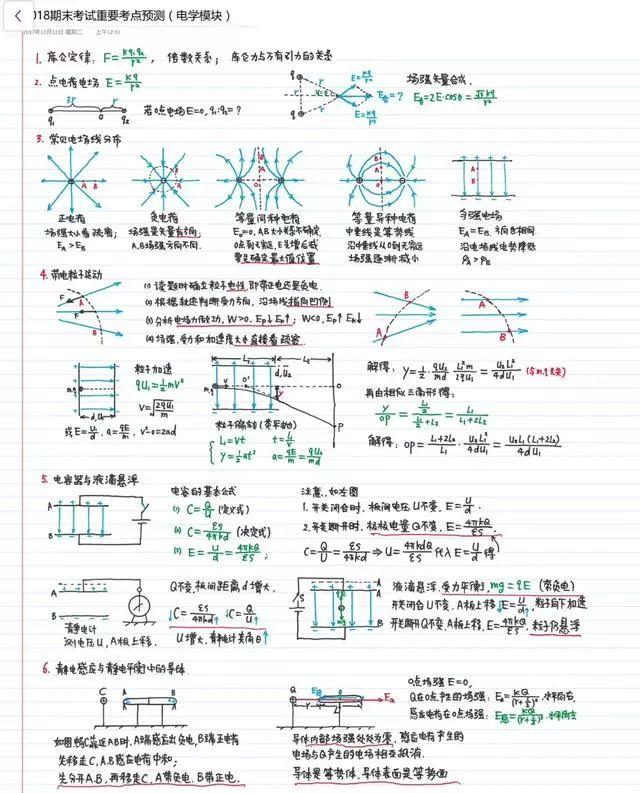 2018期末考试重要考点预测（电学模块）
2017年12月12日 星期二 上午12:01
1. 库仑定律: F=kq₁q₂/r², 倍数关系; 库仑力与万有引力的关系
2. 点电荷电场 E=kq/r²
3r r
q₁ 0 q₂
若0点电场E=0, q₁:q₂=?
E=kq/r²
E=kq/r²
E合=?
场强矢量合成.
3. 常见电场线分布
正电荷
场强大小看疏密;
E_A > E_B
负电荷
场强是矢量有方向;
A.B场强方向不同.
等量同种电荷
E₀=0, AB大小关系不确定
等量异种电荷
中垂线是等势线
沿中垂线从0到无穷远
场强逐渐减小
匀强电场
E_A=E_B. 方向也相同.
沿电场线电势降低
φ_A>φ_B
4. 带电粒子运动
(1) 读题时确立粒子电性, 即带正电还是负电.
(2) 根据轨迹判断受力方向, 沿场线指向凹侧
(3) 分析电场力做功, W>0. Ep↓ Ek↑; W<0, Ep↑ Ek↓
(4) 场强, 受力和加速度大小直接看疏密.
粒子加速
qU₁=½mv²
v=√(2qU₁/m)
或E=U/d. a=qE/m. v²-0=2ad
粒子偏转(类平抛)
L₁=vt t=L₁/v
y=½at² a=qE/m=qU₂/md
解得: y=½·qU₂/md·L₁²m/2qU₁=U₂L₁²/4dU₁ (与m.q无关)
再由相似三角形得:
y/OP=(L₁/2)/(L₁/2+L₂)=L₁/(L₁+2L₂)
解得: OP=(L₁+2L₂)/L₁·U₂L₁²/4dU₁=U₂L₁(L₁+2L₂)/4dU₁
5. 电容器与液滴悬浮
电容的基本公式
(1) C=Q/U (定义式)
(2) C=εS/4πkd (决定式)
(3) E=U/d=4πkQ/εS;
注意, 如左图
1. 开关闭合时, 极间电压U不变, E=U/d.
2. 开关断开时, 极板电量Q不变, E=4πkQ/εS
C=Q/U=εS/4πkd ⇒ U=4πkdQ/εS 代入E=U/d得
静电计
测电压U, A板上移.
Q不变, 板间距离d增大,
↓C=εS/4πkd↑ ↓C=Q/U↑
U增大, 静电计夹角θ↑
液滴悬浮. 受力平衡, mg=qE (带负电)
开关闭合U不变. A板上移, ↓E=U/d↑, 粒子向下加速
开关断开Q不变. A板上移, E=4πkQ/εS, 粒子仍悬浮
6. 静电感应与静电平衡中的导体.
如图将C靠近AB时, A端感应出负电, B端正电荷
先移走C, A.B感应电荷中和;
先分开A.B, 再移走C, A带负电. B带正电.
0点场强E=0,
Q在0点产生的场强: E_Q=kQ/(r+L/2)². 水平向右,
感应电荷在0点场强: E感=kQ/(r+L/2)². 水平向左
导体内部场强处处为零, 感应电荷产生的
电场与Q产生的电场相互抵消.
导体是等势体, 导体表面是等势面